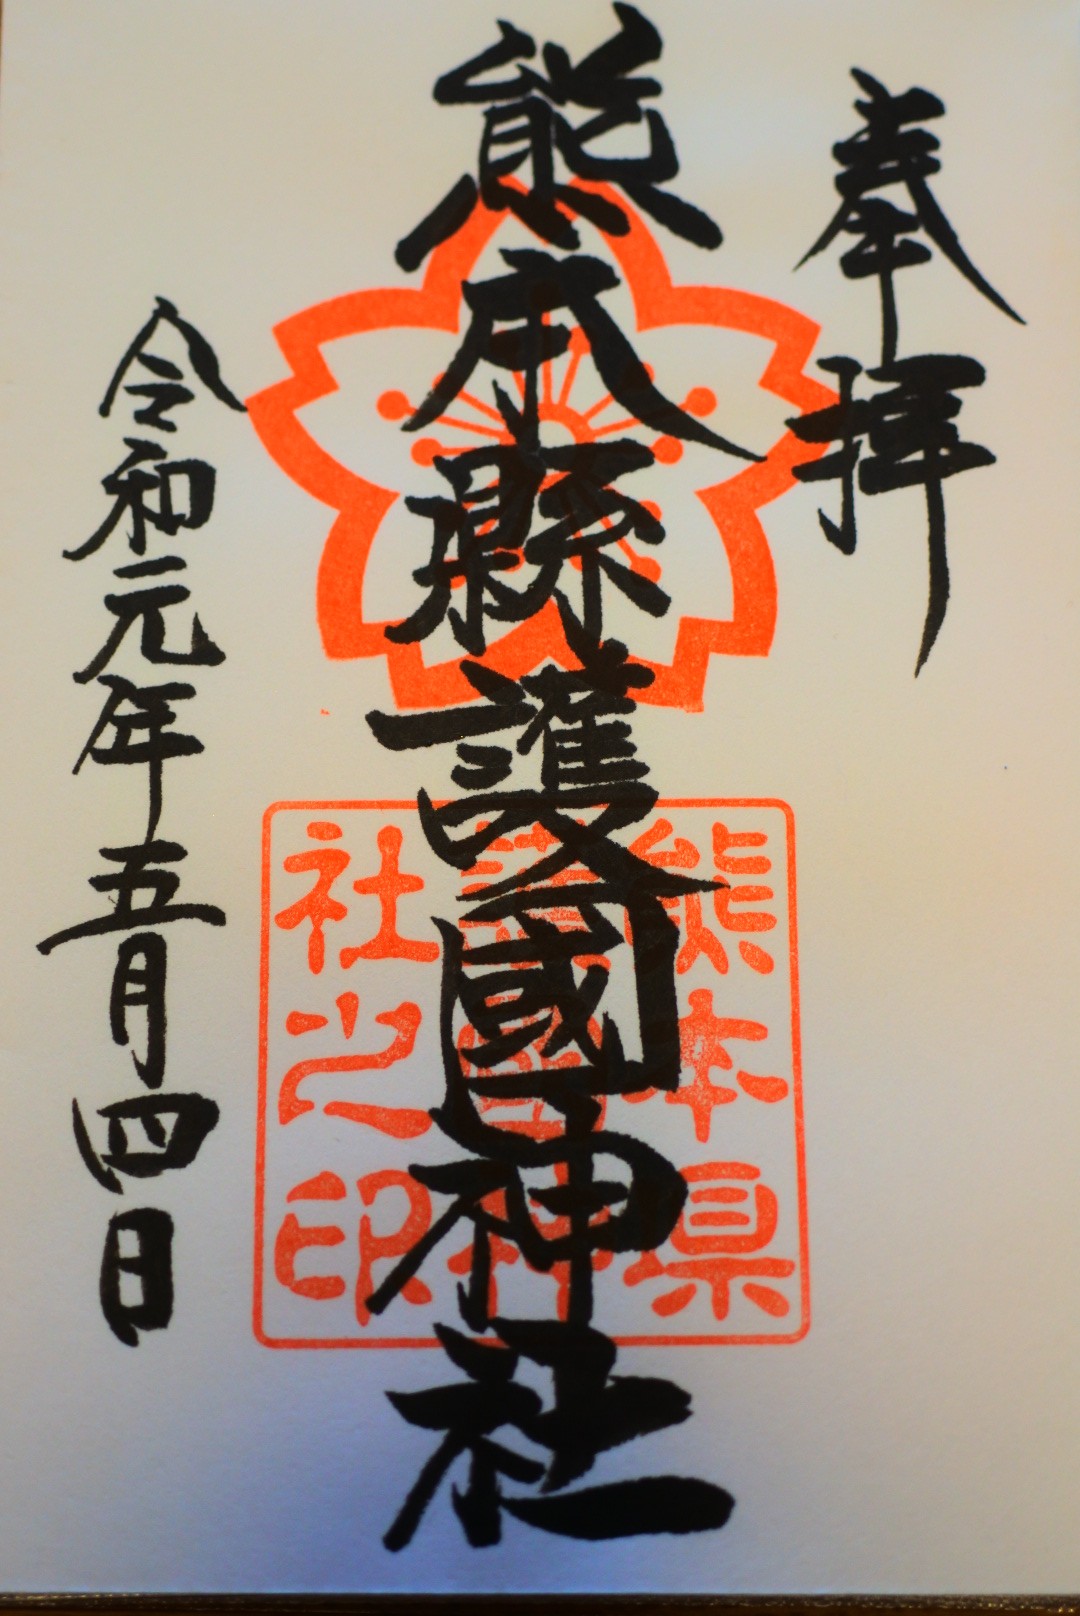 奉拝
熊本縣護國神社
熊本県
護国神
社之印
令和元年五月四日